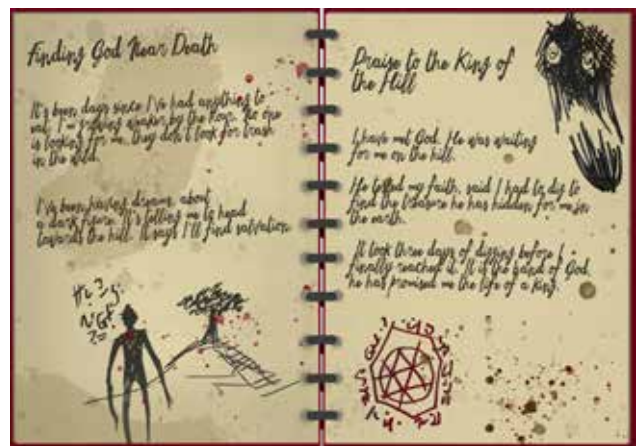 Finding God Near Death
It's been days since I've had anything to
eat. I'm growing weaker by the hour. No one
is looking for me, they don't look for trash
in the wild.
I've been having dreams, about
a dark figure. It's telling me to head
towards the hill. It says I'll find salvation.
Praise to the King of
the Hill
I have met God. He was waiting
for me on the hill.
He tested my faith, said I had to dig to
find the treasure he has hidden for me in
the earth.
It took three days of digging before I
finally reached it. It is the hand of God,
he has promised me the life of a King.